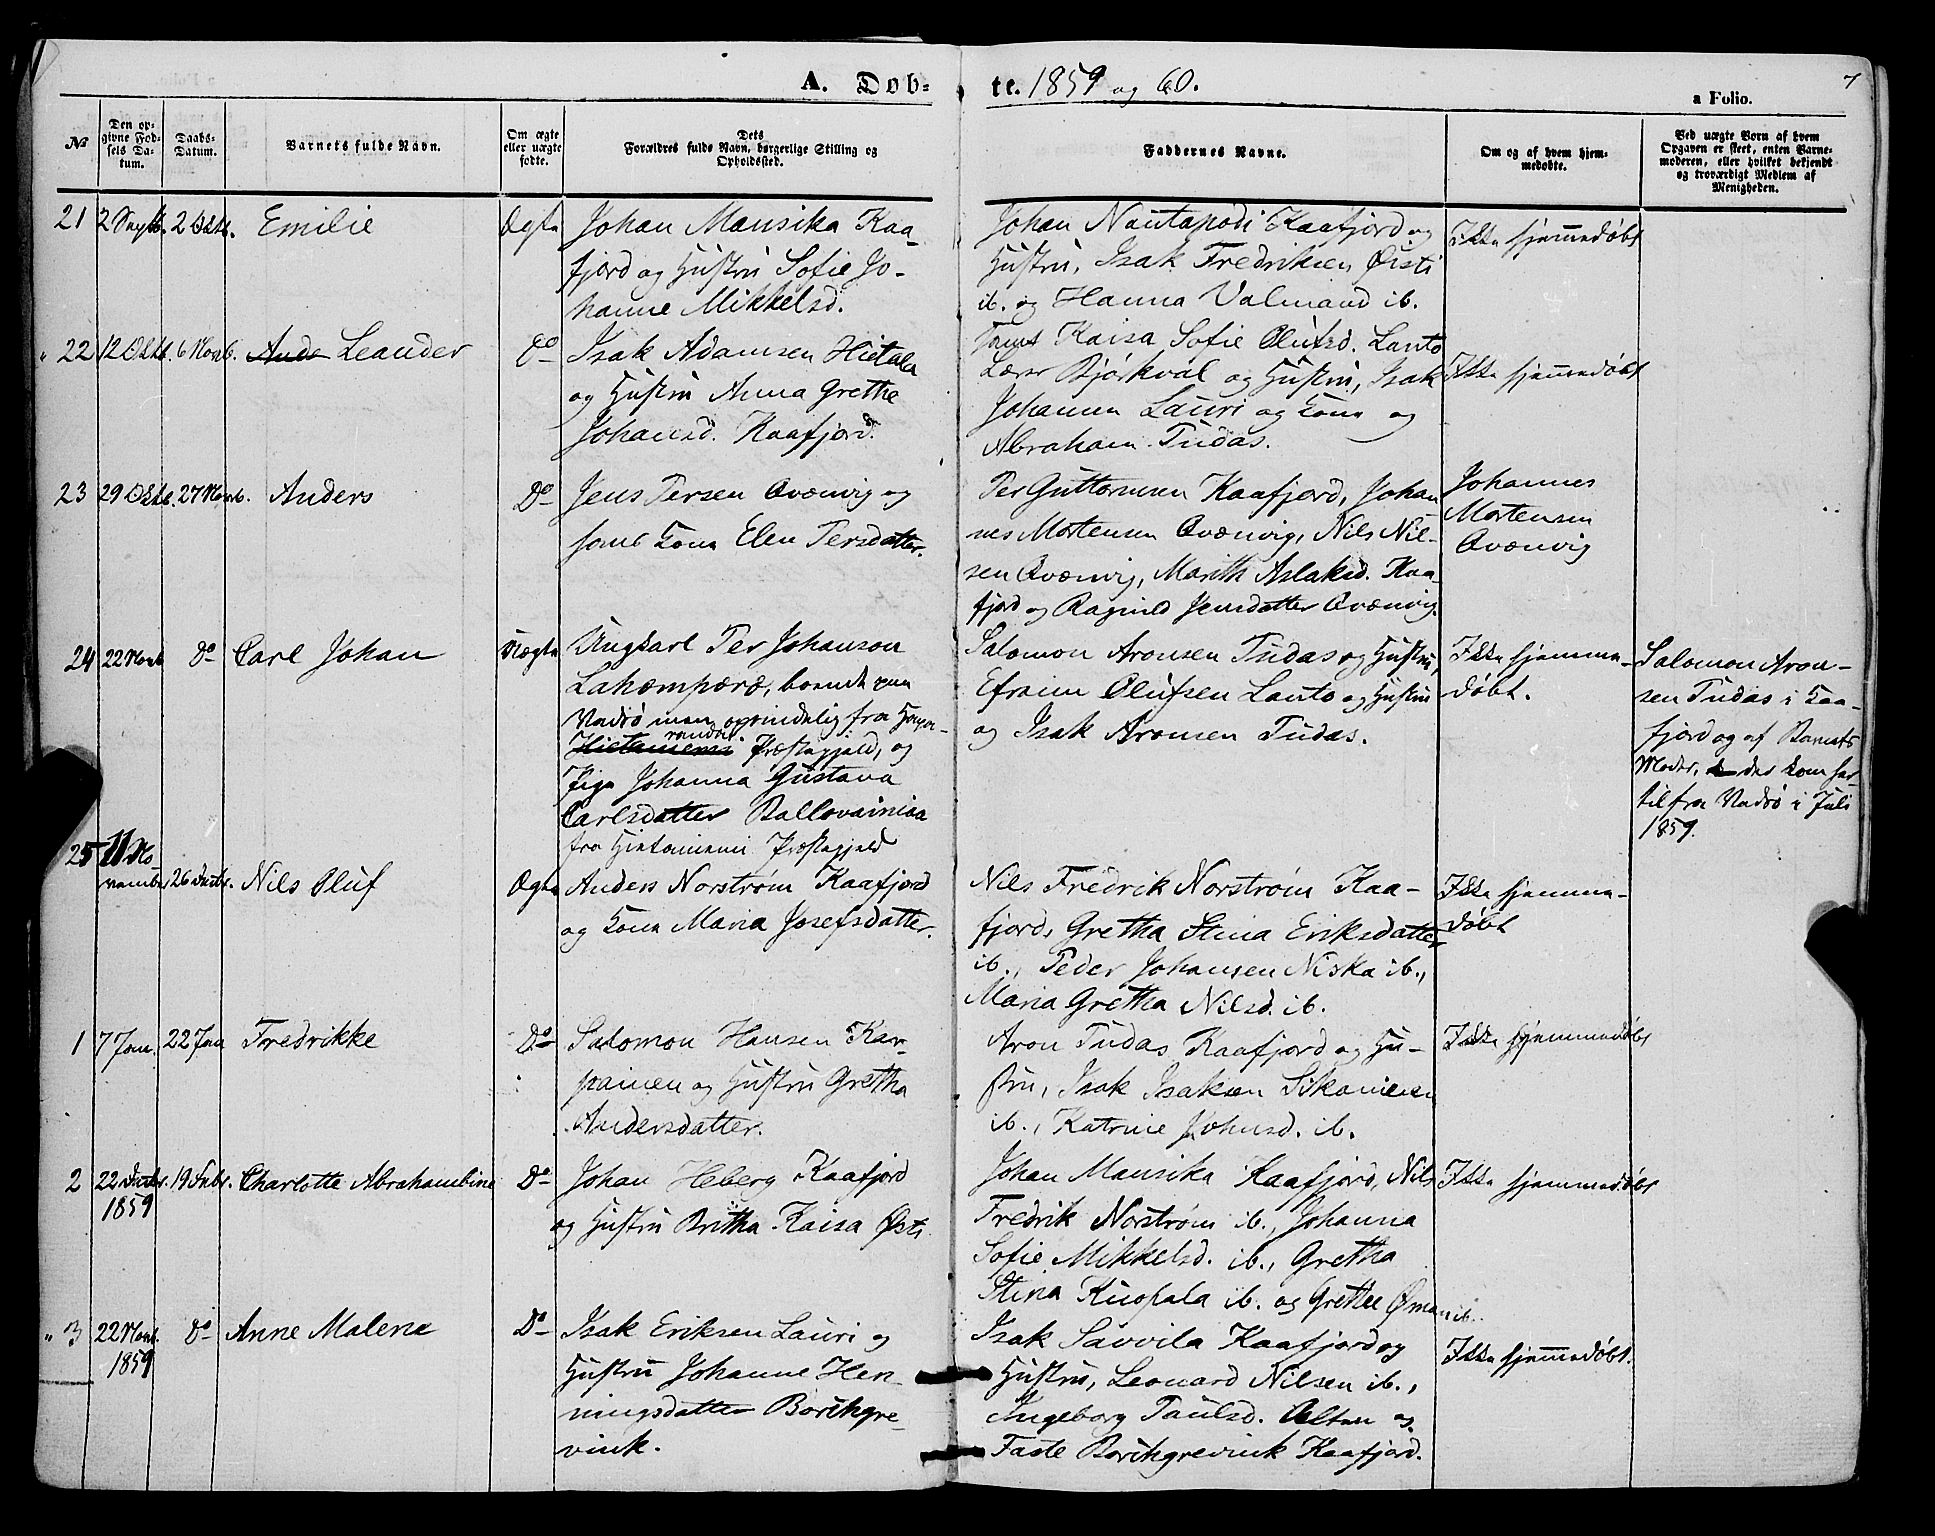 A. Døb-
te. 1859 og 60.
7
a Folio.
No
Den op-
givne Fød-
sels Da-
tum.
Daabs-
Datum.
Barnets fulde Navn.
Om ægte
eller uægte
fødte.
Dets
Forældres fulde Navn, borgerlige Stilling og
Opholdssted.
Faddernes Navne.
Om og af hvem hjem-
medøbte.
Ved uægte Børn af hvem
Opgaven er skeet, enten Barne-
moderen, eller hvilket bekjendt
og troværdigt Medlem af
Menigheden.
21 2 Septb. 2 Oktb. Emilie
Ægte
Johan Mansika Kaa-
fjord og Hustru Sofie Jo-
hanne Mikkelsd.
Johan Nautapodi Kaafjord og
Hustru, Isak Fredriksen Østi
ib. og Hanna Valmand ib.
Ikke hjemmedøbt
22 12 Oktb. 6 Novb. Ande Leander
Do
Isak Adamsen Hietala
og Hustru Anna Grethe
Johansd. Kaafjord.
Kaisa Sofie Olufsd. Lanto
Lærer Bjørkval og Hustru, Isak
Johannen Lauri og Kone og
Abraham Tudas.
Ikke hjemmedøbt
23 29 Oktb. 27 Novb. Anders
Do
Jens Persen Qvænvig og
Kone Elen Persdatter.
Per Guttormsen Kaafjord, Johan-
nes Mortensen Qvænvig, Nils Nil-
sen Qvænvig, Marith Aslaksd. Kaa-
fjord og Ragnild Jensdatter Qvænvig.
Johannes
Mortensen
Qvænvig
24 22 Novb. Do Carl Johan
Uægte
Ungkarl Per Johanson
Lahæmpæræ, boende paa
Vadsø men oprindelig fra Hapa-
randa
Hietaniemi Præstegjeld, og
Pige Johanna Gustava
Carlsdatter Ballovainiaa
fra Hietaniemi Præstegjeld
Salomon Aronsen Tudas og Hustru,
Efraim Olufsen Lanto og Hustru
og Isak Aronsen Tudas.
Ikke hjemme-
døbt.
Salomon Aron-
sen Tudas i Kaa-
fjord og af Barnets
Moder, der kom her-
til fra Vadsø i Juli
1859.
25 11 No-
vember 26 Decbr. Nils Oluf
Ægte
Anders Norstrøm Kaafjord
og Kone Maria Josefsdatter.
Nils Fredrik Norstrøm Kaa-
fjord, Gretha Stina Eriksdatter
ib., Peder Johansen Niska ib.,
Maria Gretha Nilsd. ib.
Ikke hjemme-
døbt
1 7 Jan. 22 Jan Fredrikke
Do
Salomon Hansen Kar-
painen og Hustru Gretha
Andersdatter.
Aron Tudas Kaafjord og Hu-
stru, Isak Isaksen Sikaniemi
ib., Katrine Johnsd. ib.
Ikke hjemmedøbt
2 22 Decbr. 19 Febr. Charlotte Abrahambine
1859
Do
Johan Heberg Kaafjord
og Hustru Britha Kaisa Østi
Johan Mansika Kaafjord, Nils
Fredrik Norstrøm ib., Johanna
Sofie Mikkelsd. ib., Gretha
Stina Kuopala ib. og Grethe Øman ib.
Ikke hjemmedøbt
3 22 Novb. Do Anne Malene
1859
Do
Isak Eriksen Lauri og
Hustru Johanne Hen-
ningsdatter Borchgre-
vink.
Isak Savvila Kaafjord og
Hustru, Leonard Nilsen ib.,
Ingeborg Paulsd. Alten og
Faste Borchgrevink Kaafjord.
Ikke hjemmedøbt.